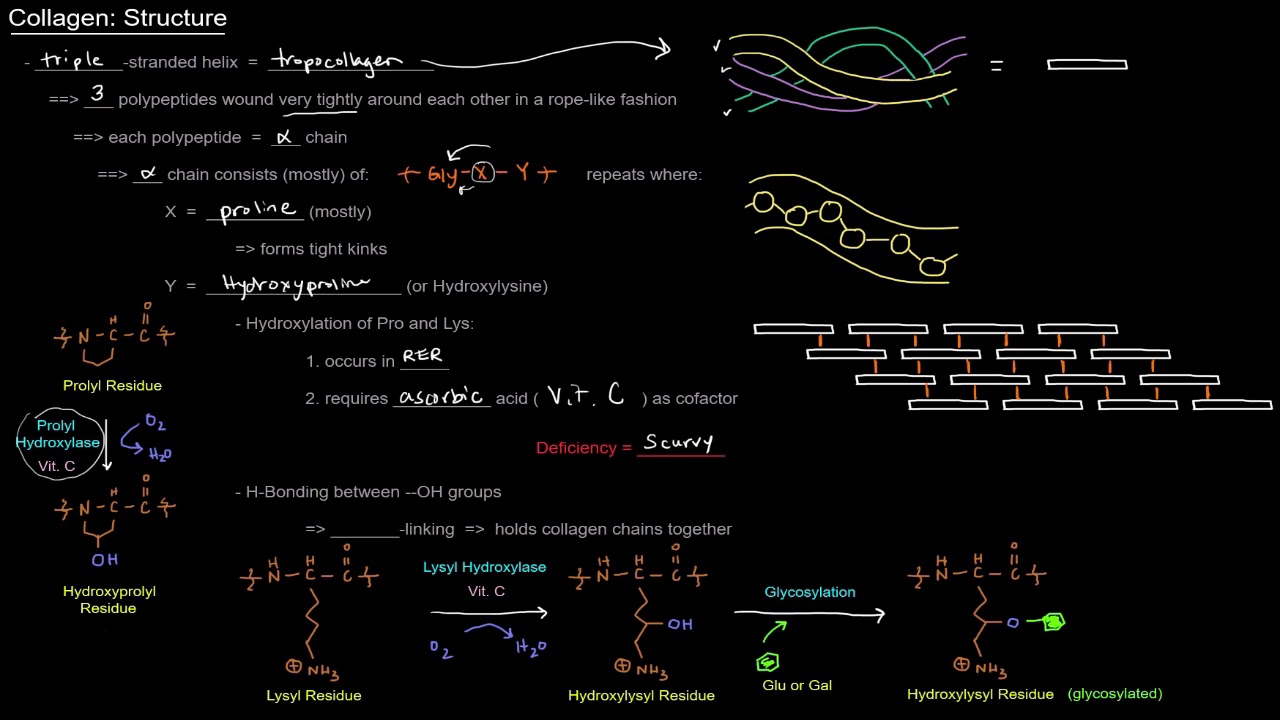 Collagen: Structure
- triple -stranded helix = tropocollagen
==> 3 polypeptides wound very tightly around each other in a rope-like fashion
=
==> each polypeptide = α chain
==> α chain consists (mostly) of: Gly - X - Y repeats where:
X = proline (mostly)
=> forms tight kinks
Y = Hydroxyproline (or Hydroxylysine)
- Hydroxylation of Pro and Lys:
1. occurs in RER
2. requires ascorbic acid ( Vit. C ) as cofactor
Deficiency = Scurvy
- H-Bonding between --OH groups
=> ________-linking => holds collagen chains together
O
H
N - C - C
Prolyl Residue
Prolyl
Hydroxylase
Vit. C
O2
H2O
O
H
N - C - C
OH
Hydroxyprolyl
Residue
O
H H
N - C - C
⊕ NH3
Lysyl Residue
Lysyl Hydroxylase
Vit. C
O2 H2O
O
H H
N - C - C
OH
⊕ NH3
Hydroxylysyl Residue
Glycosylation
Glu or Gal
O
H H
N - C - C
O
⊕ NH3
Hydroxylysyl Residue (glycosylated)